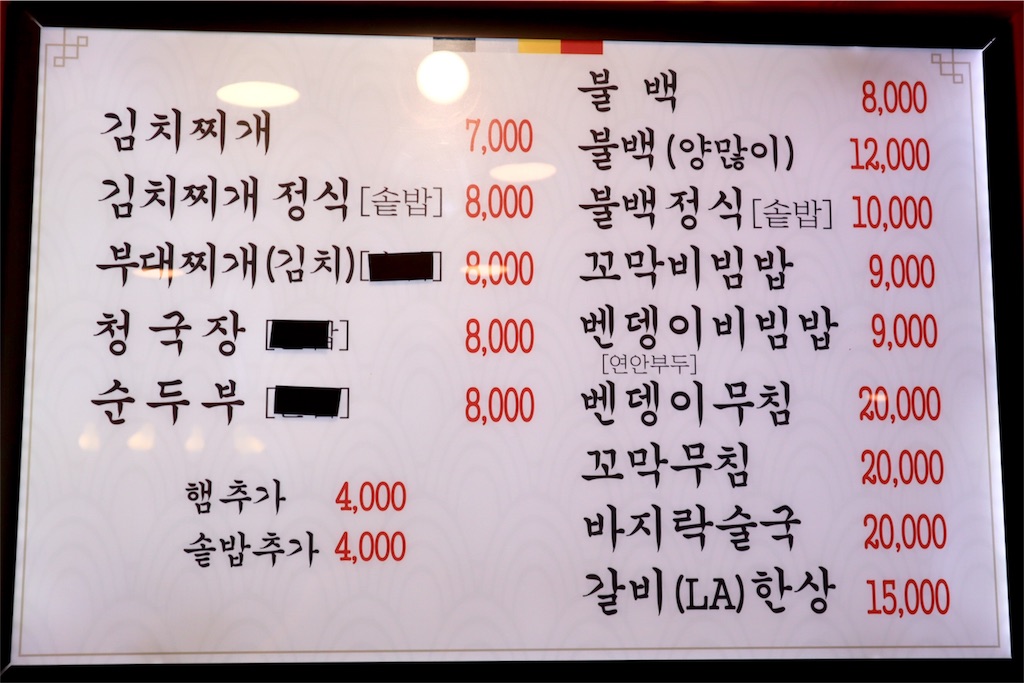 김치찌개 7,000
김치찌개 정식 [솥밥] 8,000
부대찌개(김치) 8,000
청국장 8,000
순두부 8,000
햄추가 4,000
솥밥추가 4,000
불백 8,000
불백(양많이) 12,000
불백정식[솥밥] 10,000
꼬막비빔밥 9,000
벤뎅이비빔밥 9,000
[연안부두]
벤뎅이무침 20,000
꼬막무침 20,000
바지락술국 20,000
갈비(LA)한상 15,000